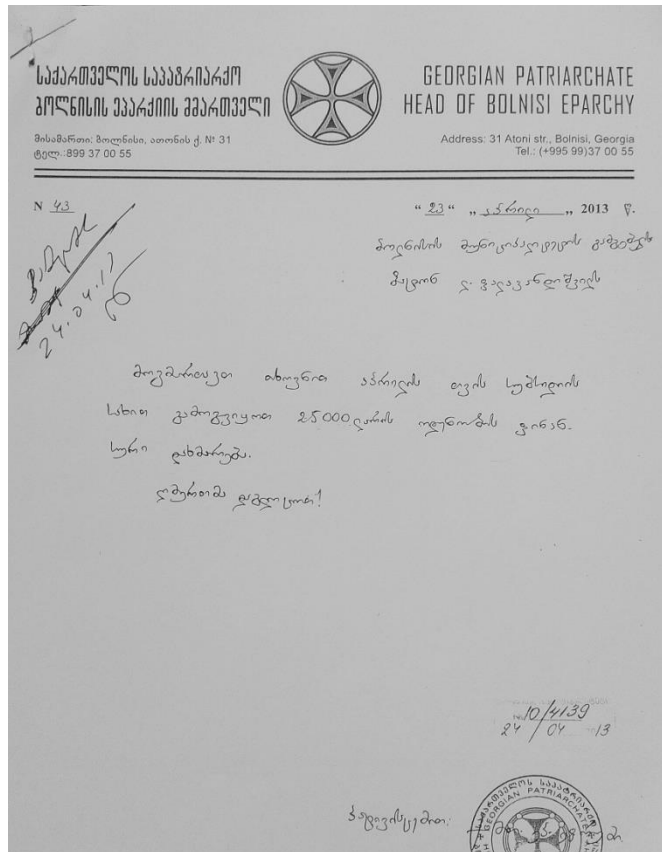 საქართველოს საპატრიარქო
ბოლნისის ეპარქიის მმართველი
მისამართი: ბოლნისი, ათონის ქ. № 31
ტელ.:899 37 00 55
GEORGIAN PATRIARCHATE
HEAD OF BOLNISI EPARCHY
Address: 31 Atoni str., Bolnisi, Georgia
Tel.: (+995 99)37 00 55
N 43
“ 23 “ „ აპრილი „ 2013 წ.
ბოლნისის მუნიციპალიტეტის გამგებელს
ბატონ
24.04.13
მოგმართავთ თხოვნით აპრილის თვის სუბსიდიის
სახით გამოგვიყოთ 25000 ლარის ოდენობის ფინან-
სური დახმარება.
ღმერთმა დაგლოცოთ!
10/4139
24 / 04 13
პატივისცემით:
საქართველოს საპატრიარქო
GEORGIAN PATRIARCHATE